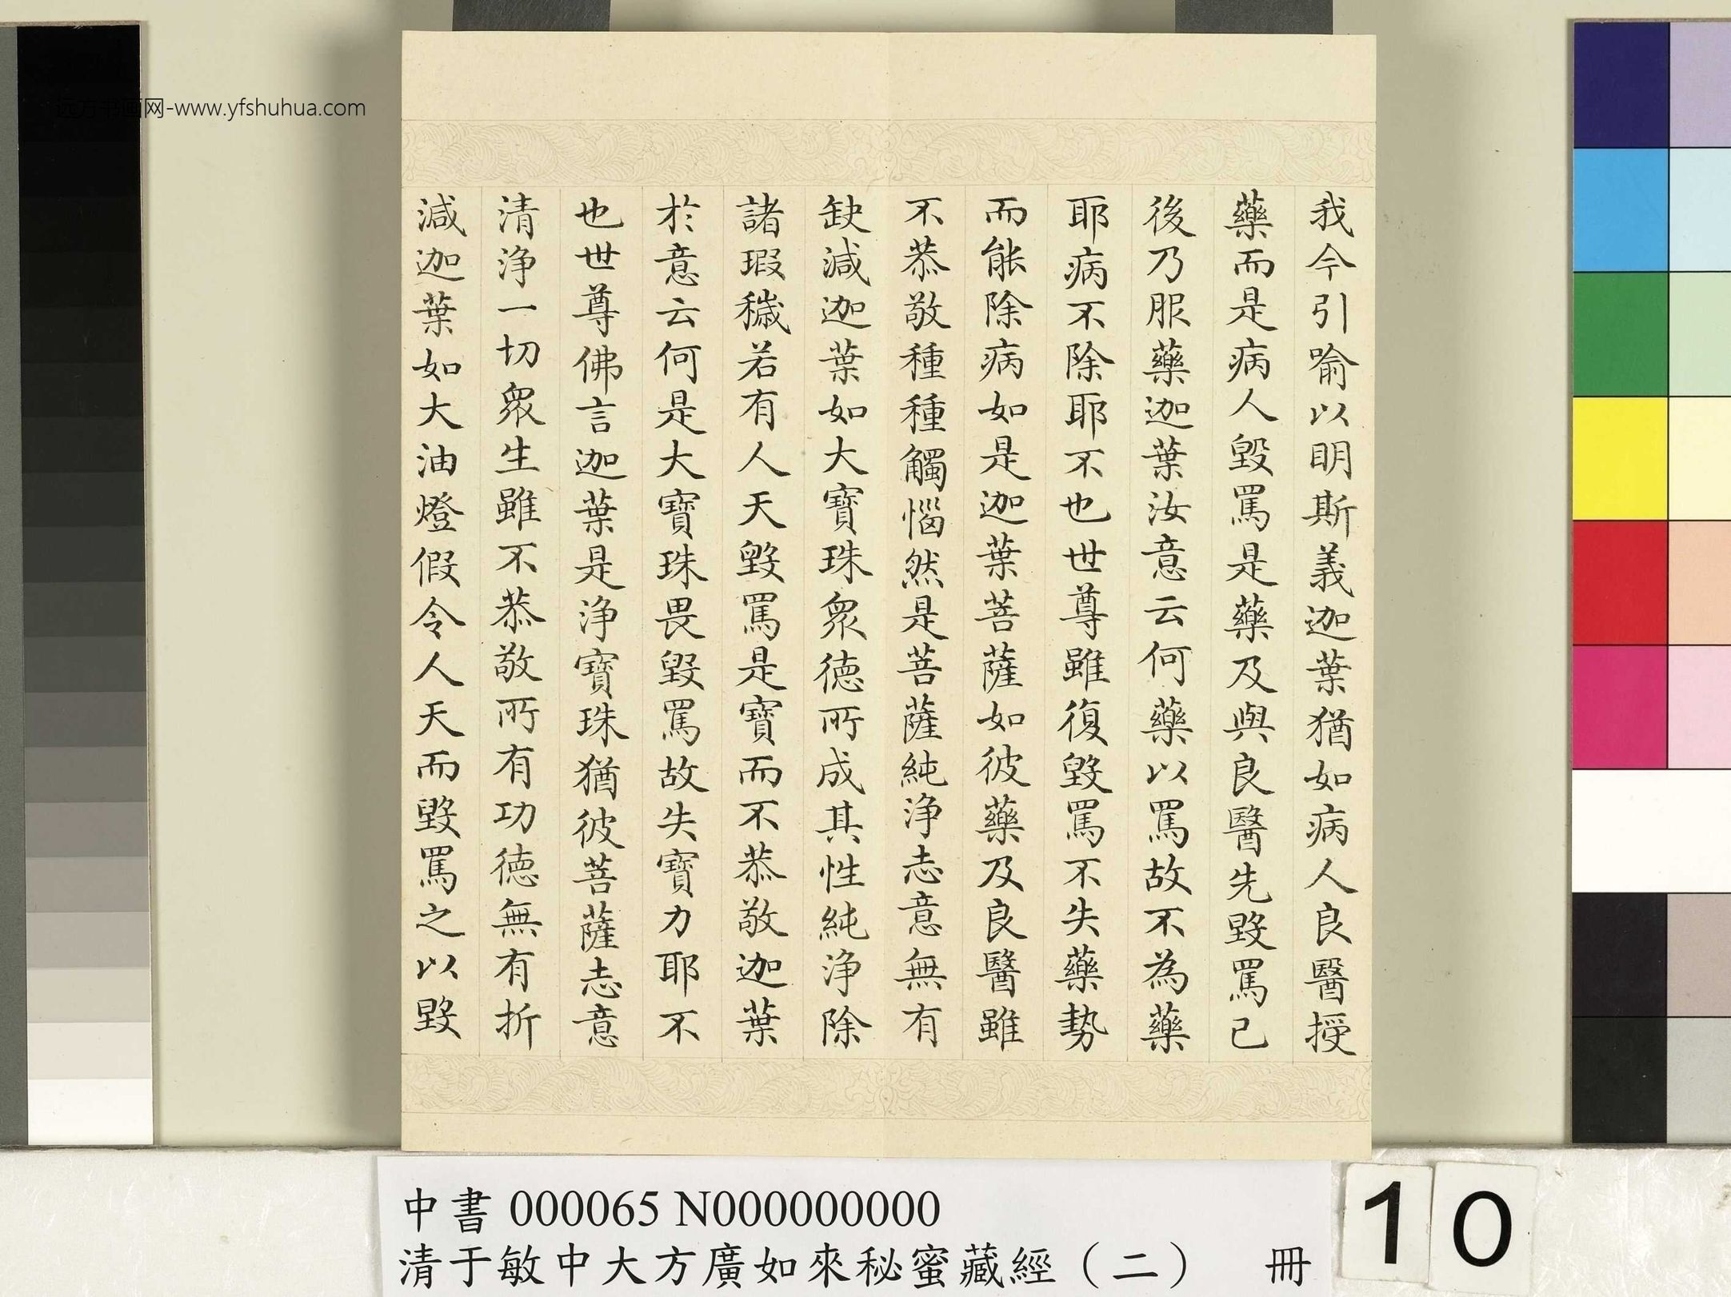 远方书画网-www.yfshuhua.com
我今引喻以明斯義迦葉猶如病人良醫授
藥而是病人毀罵是藥及與良醫先毀罵已
後乃服藥迦葉汝意云何藥以罵故不為藥
耶病不除耶耶不也世尊雖復毀罵不失藥勢
而能除病如是迦葉菩薩如彼藥及良醫雖
不恭敬種種觸惱然是菩薩純淨志意無有
缺減迦葉如大寶珠眾德所成其性純淨除
諸瑕穢若有人天毀罵是寶而不恭敬迦葉
於意云何是大寶珠畏毀罵故失寶力耶不
也世尊佛言迦葉是淨寶珠猶彼菩薩志意
清淨一切眾生雖不恭敬所有功德無有折
減迦葉如大油燈假令人天而毀罵之以毀
中書 000065 N000000000
清于敏中大方廣如來秘蜜藏經（二） 冊
10